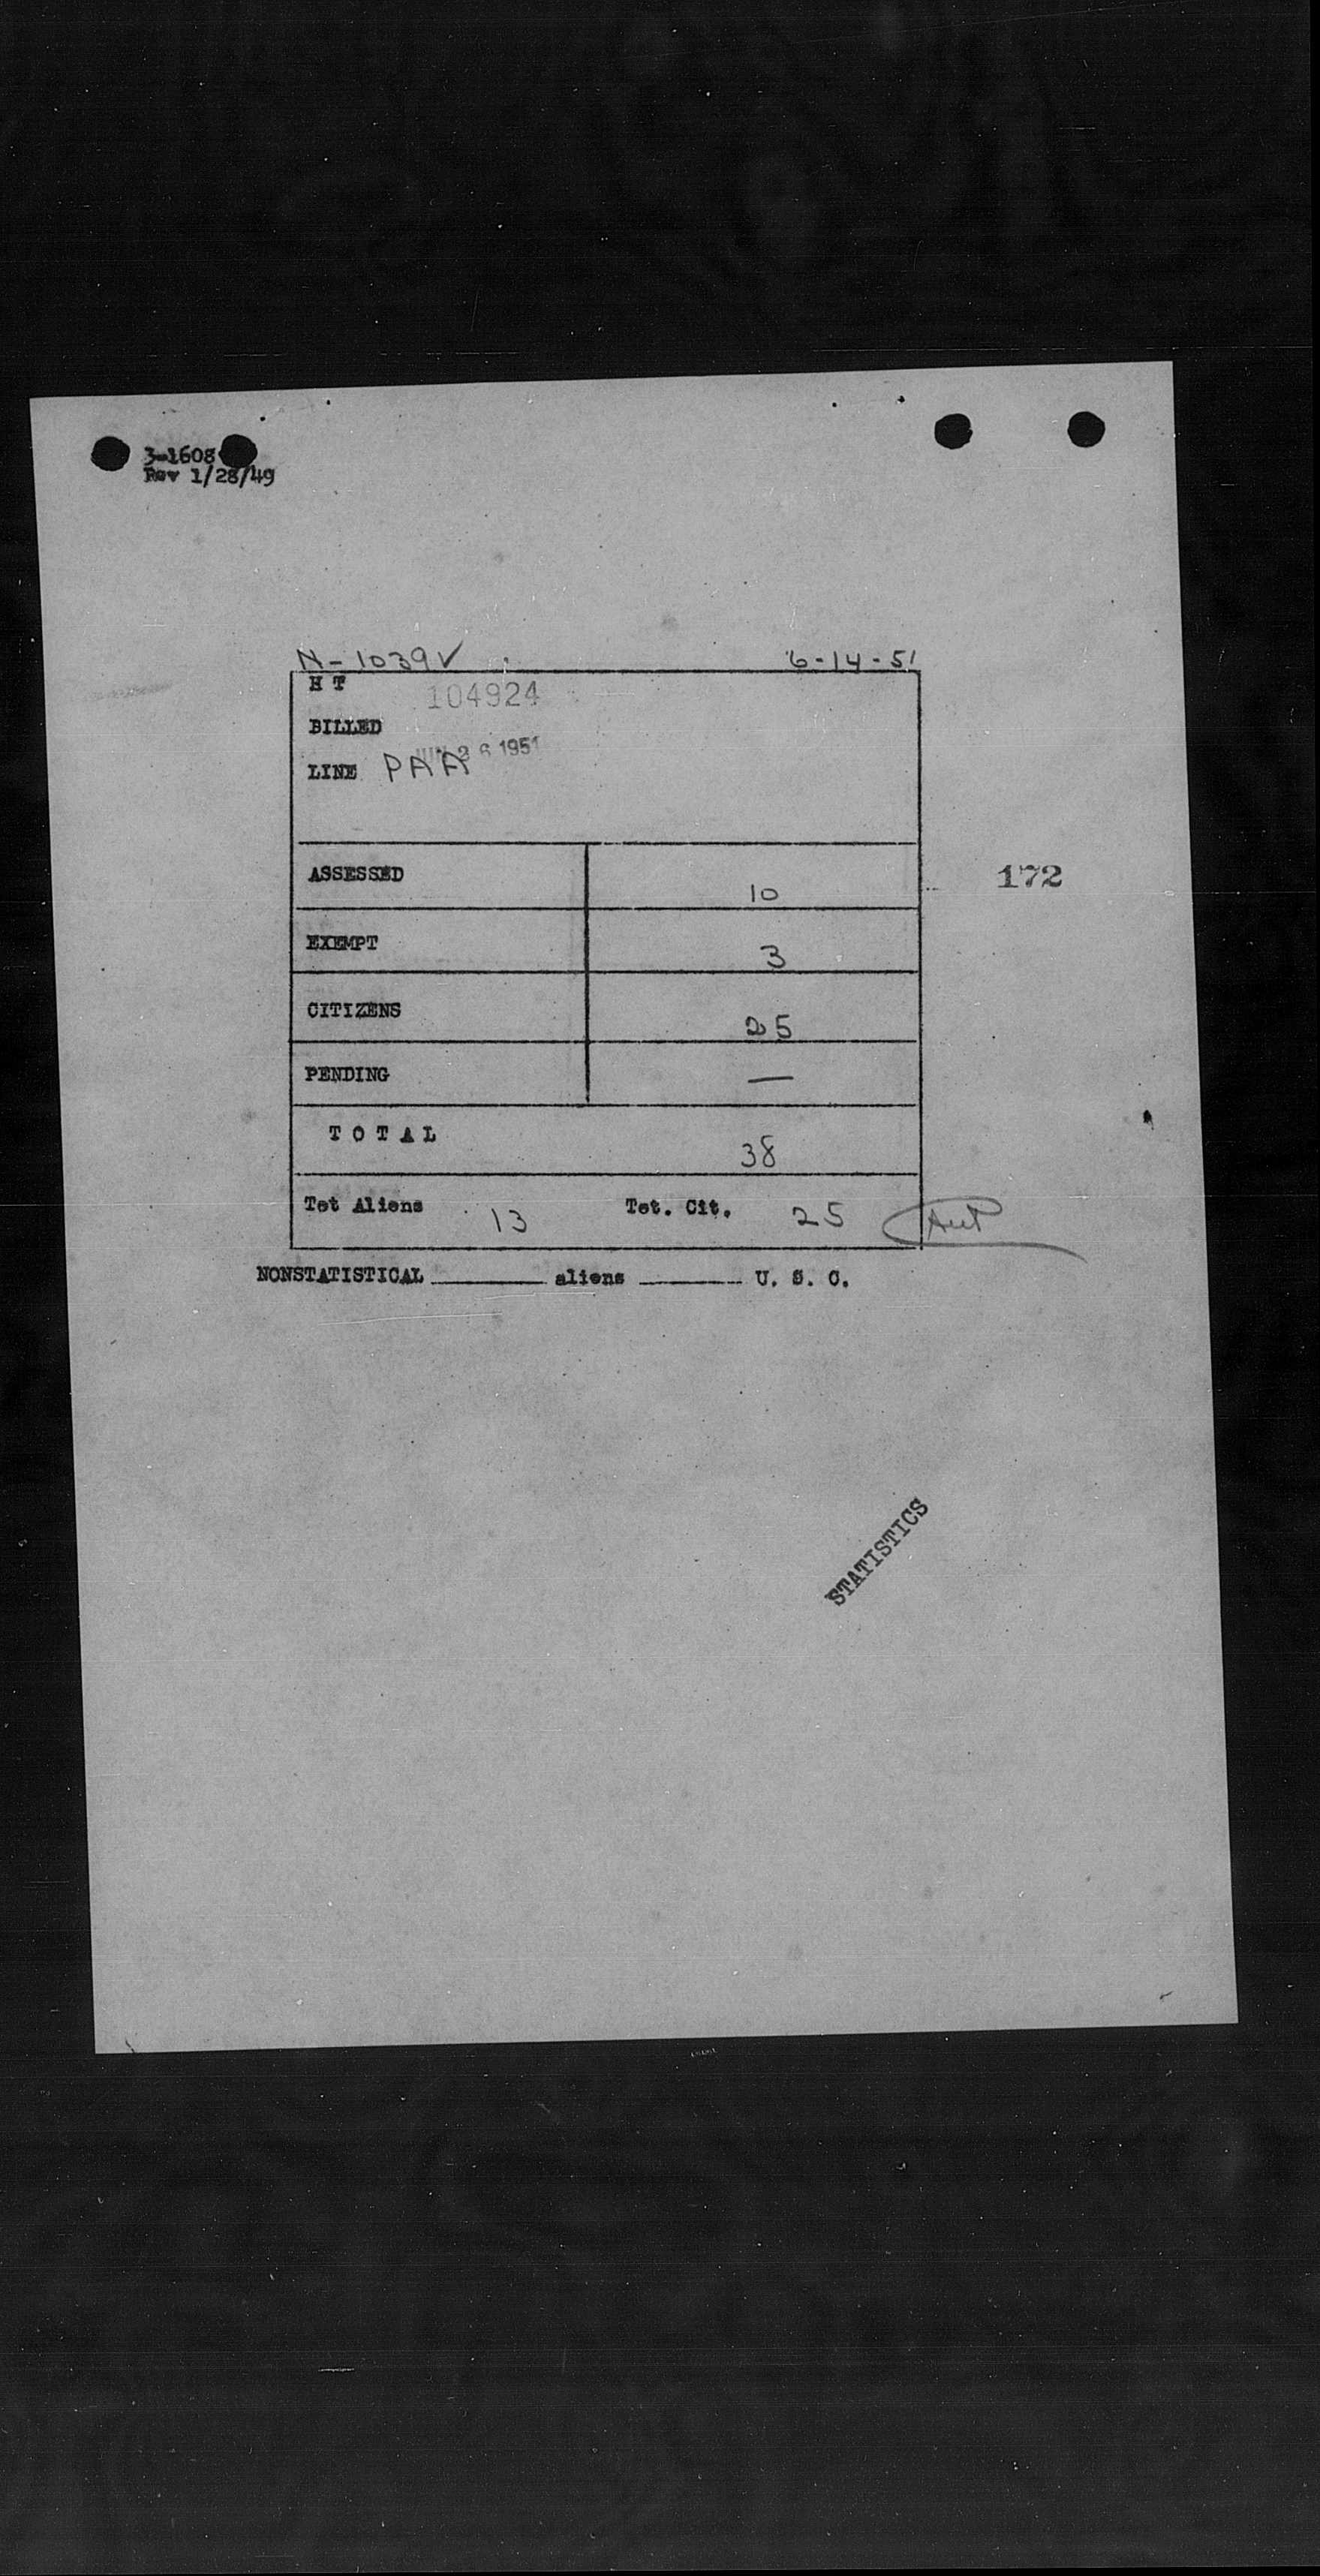 3-1608
Rev 1/28/49
N-1039V 6-14-51
H T 104924
BILLED
JUN 26 1951
LINE PAA
ASSESSED 10
172
EXEMPT 3
CITIZENS 25
PENDING —
T O T A L 38
Tot Aliens 13 Tot. Cit. 25
NONSTATISTICAL ______ aliens ______ U. S. C.
STATISTICS